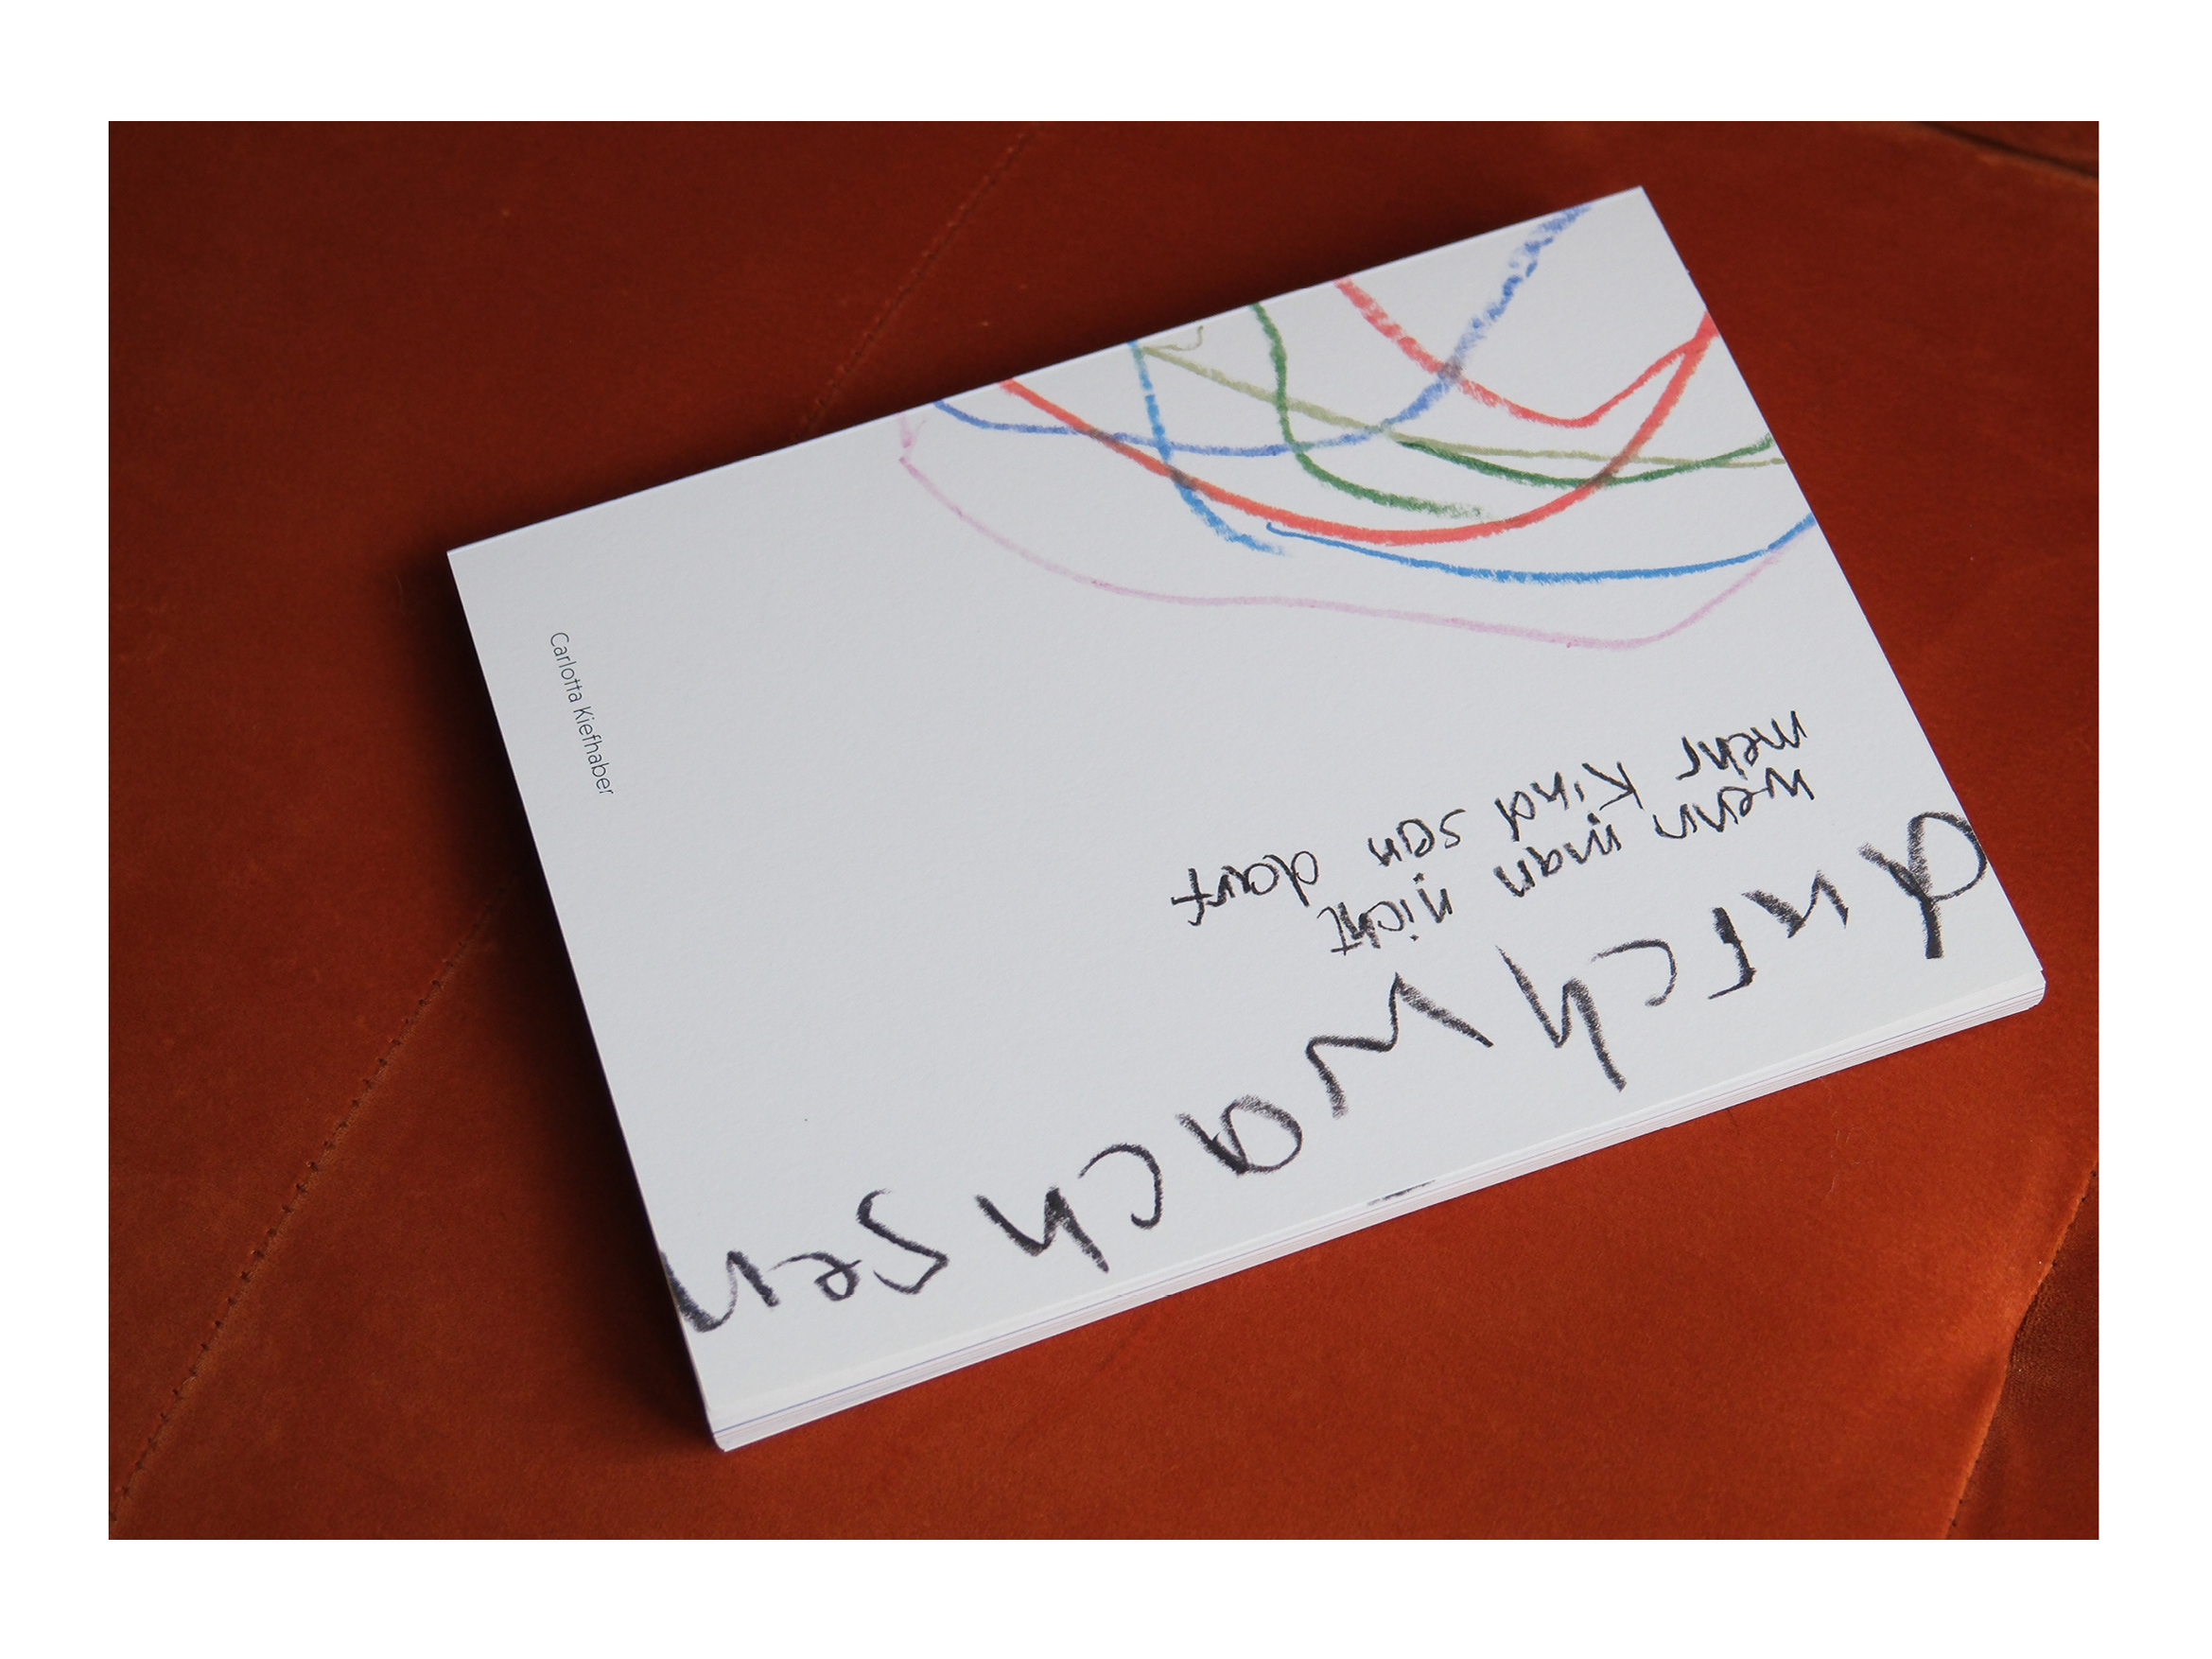 durchwachsen
wenn man nicht
mehr Kind sein darf
Carlotta Kiefhaber